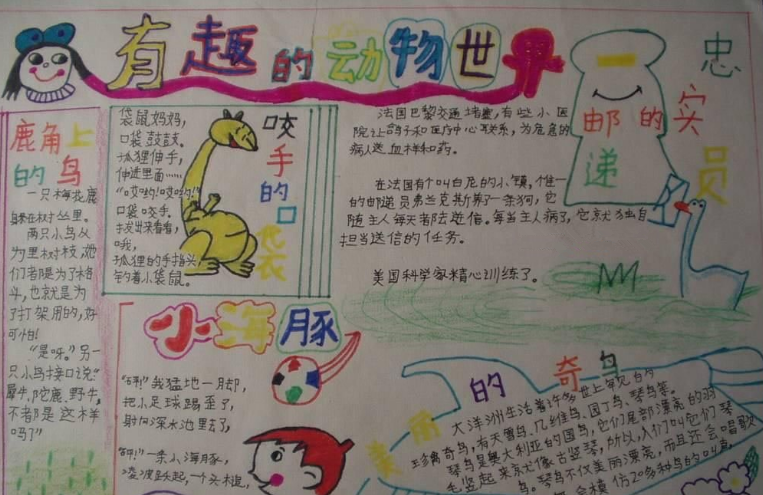 有趣的动物世界
鹿角上
的鸟
一只梅花鹿
躲在树丛里。
两只小鸟从
为了打架用的,好
可怕!
"是呀。"另一
只小鸟接口说:"
犀牛,陀鹿、野牛,
不都是这样
吗?"
袋鼠妈妈,
口袋鼓鼓。
狐狸伸手,
伸进里面……
"哎哟!哎哟!"
口袋咬手。
拔出来看看,
哦,
狐狸的手指头,
钓着小袋鼠。
咬手的口袋
忠实的邮递员
法国巴黎交通堵塞,有些小医
院让鸽子和医疗中心联系,为危急的
病人送血样和药。
在法国有个叫白尼的小镇,惟一
的邮递员弗兰克斯养了一条狗,它
随主人每天都去送信。每当主人病了,它就独自
担当送信的任务。
美国科学家精心训练了。
小海豚
"砰!"我猛地一脚,
把小足球踢歪了,
射向深水池里去了,
"砰!"一条小海豚,
美丽的奇鸟
大洋洲生活着许多世上罕见的
珍禽奇鸟,有天鹅鸟、几维鸟、园丁鸟、琴鸟等。
琴鸟是澳大利亚的国鸟,它们尾部漂亮的羽
毛竖起来京尤像古竖琴,所以,人们叫它们琴
鸟。琴鸟不仅美丽漂亮,而且还会唱歌
会模仿20多种鸟的叫声